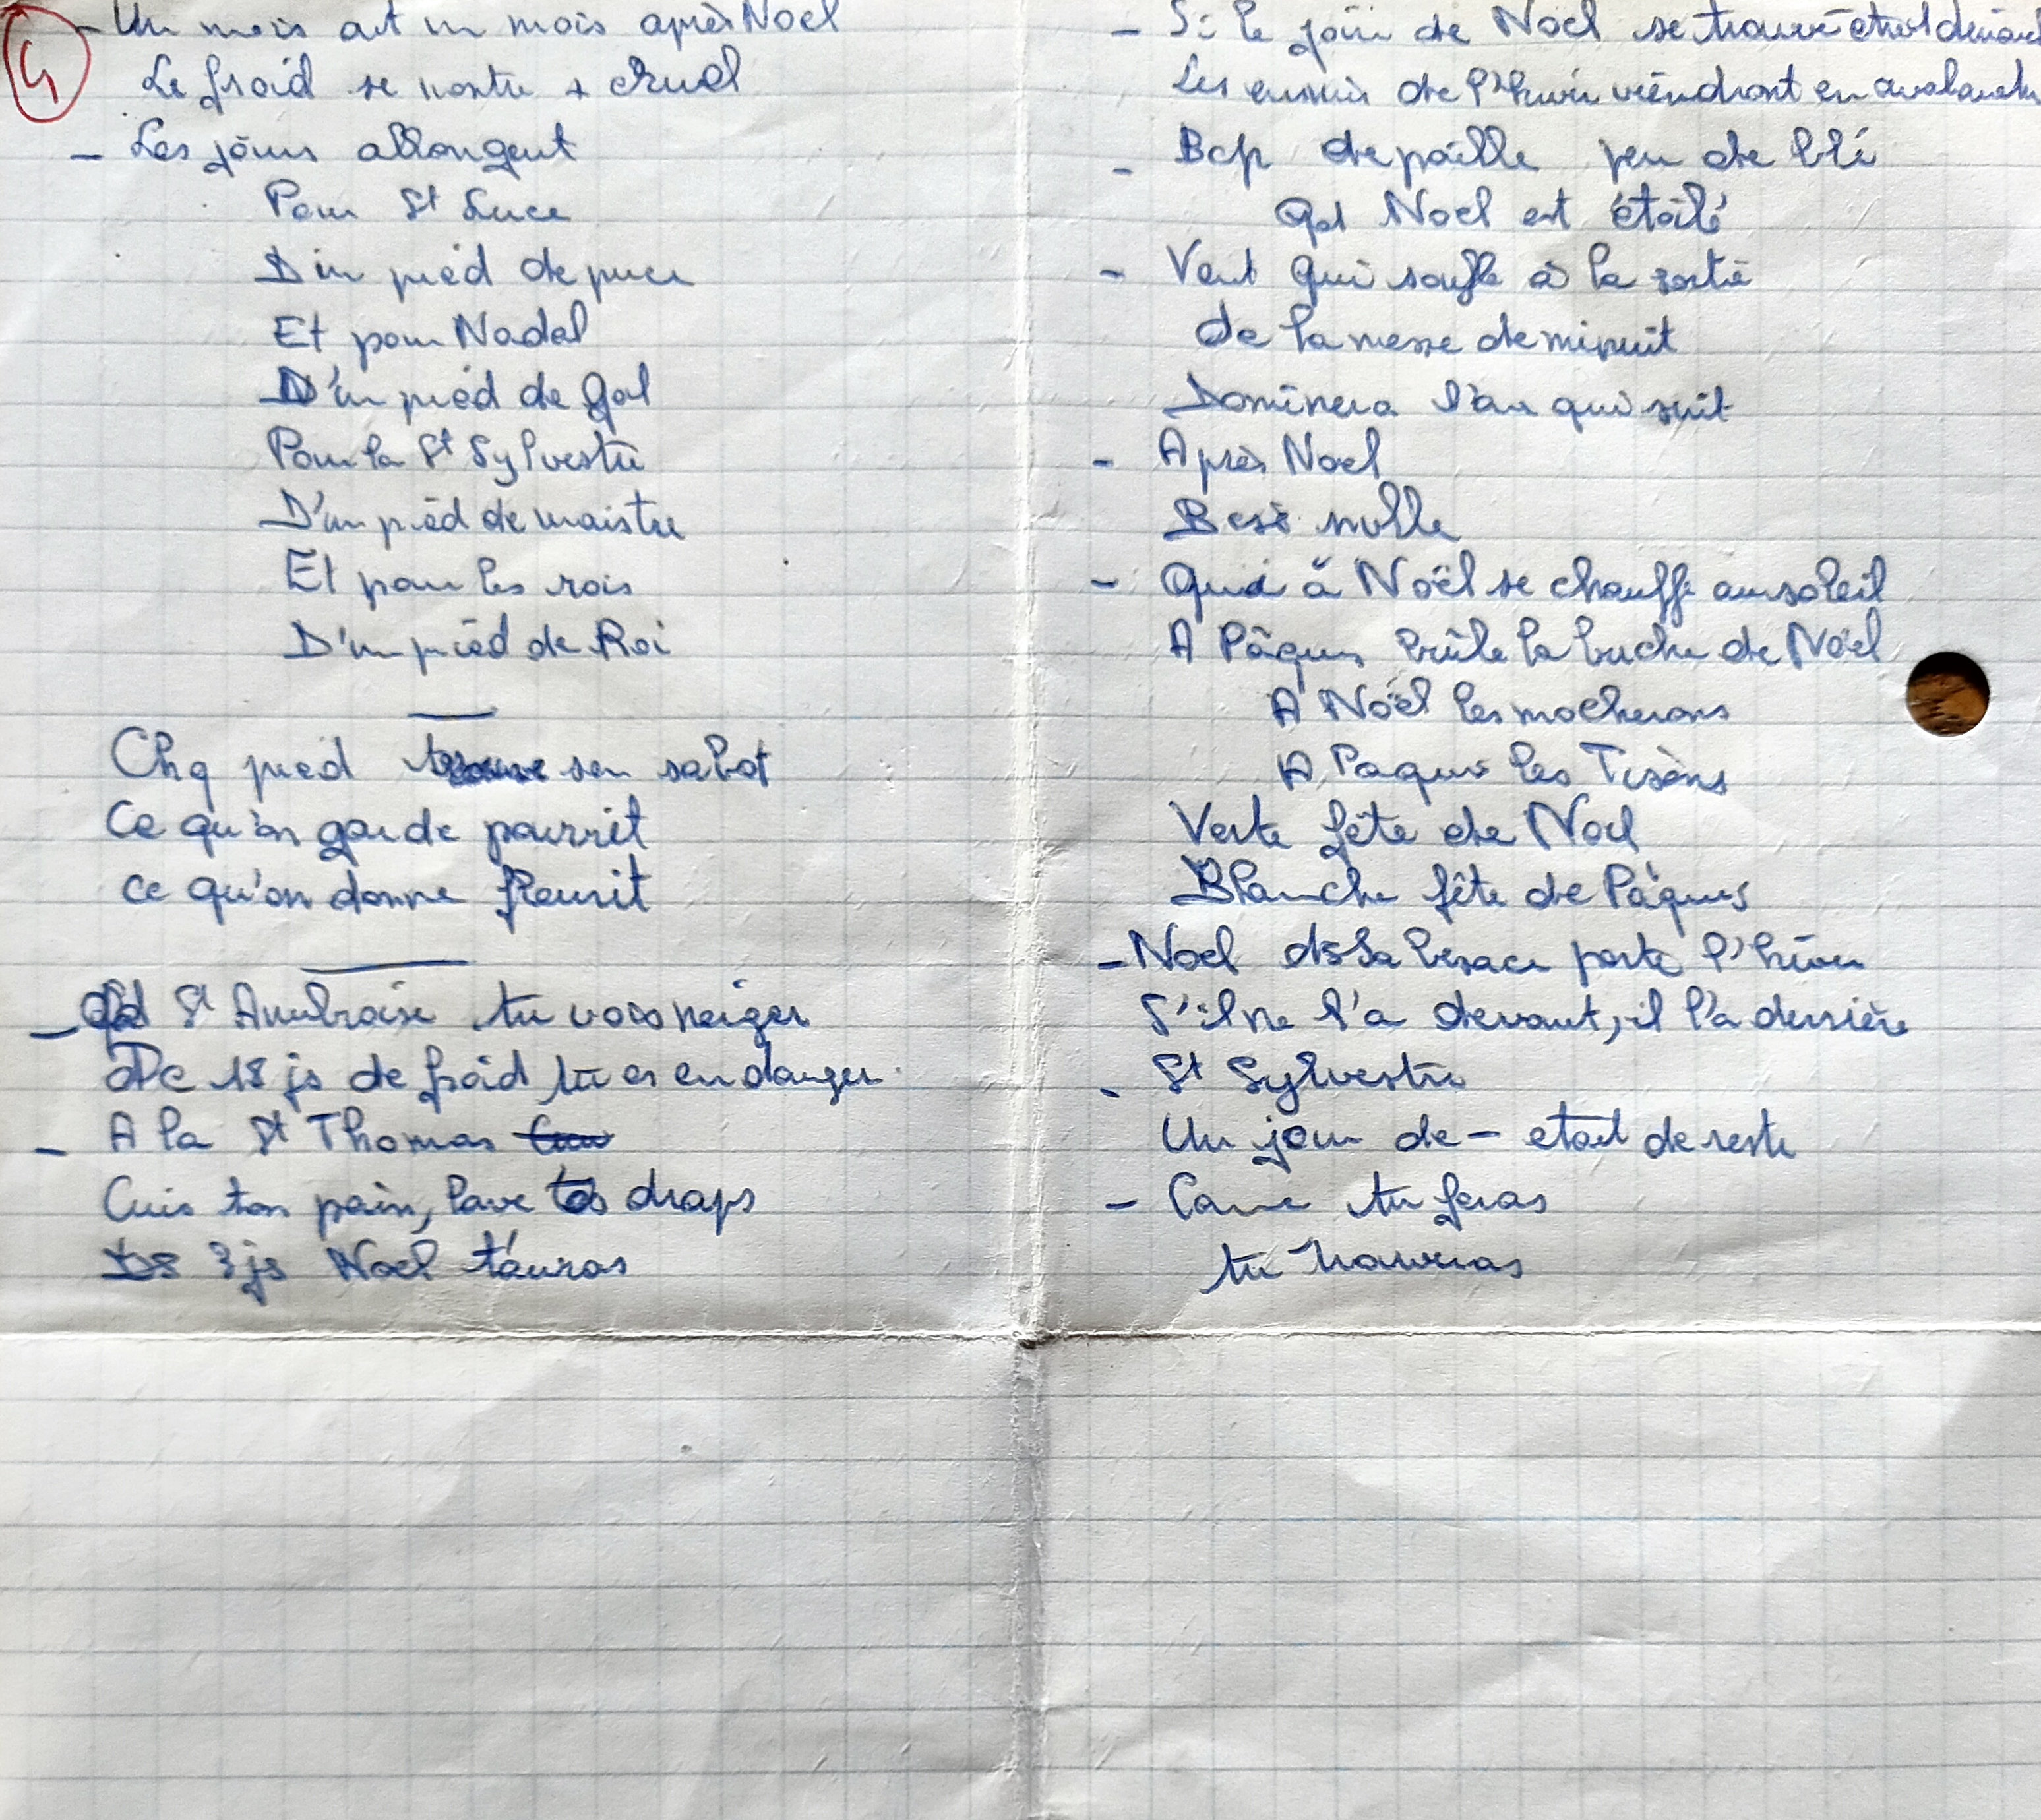 4
- Un mois avt un mois après Noel
Le froid se montre + cruel
- Les jours allongent
Pour St Luce
D'un pied de puce
Et pour Nadal
D'un pied de Gal
Pour la St Sylvestre
D'un pied de maistre
Et pour les rois
D'un pied de Roi
Chq pied trouve son sabot
Ce qu'on garde pourrit
Ce qu'on donne fleurit
- Qd St Ambroise tu vois neiger
De 18 js de froid tu es en danger.
- A la St Thomas
Cuis ton pain, lave tes draps
Ds 3 js Noel t'auras
- Si le jour de Noël se trouve être
Les ennuis de l'hiver viendront en avalanche
- Bcp de paille peu de blé
Qd Noel est étoilé
- Vent qui soufle à la sortie
de la messe de minuit
Dominera l'an qui suit
- Après Noel
Bise molle
- Qui à Noël se chauffe au soleil
A Pâques brûle la buche de Noël
A Noël les moucherons
A Paques les Tisons
Verte fête de Noel
Blanche fête de Pâques
- Noel ds sa besace porte l'hiver
S'il ne l'a devant, il l'a derrière
- St Sylvestre
Un jour de - et de reste
- Comme tu feras
tu trouveras